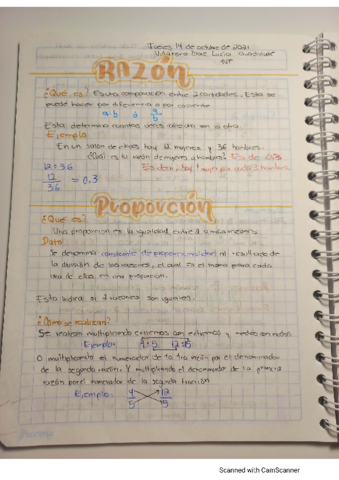 Jueves 14 de octubre de 2021
Lucia Guadalupe
RAZÓN
¿Qué es? Es una comparación entre 2 cantidades. Esta se
puede hacer por diferencia o por cociente
a:b ó a/b
Esta determina cuantas veces una en la otra.
Ejemplo
En un salon de clases hay 12 mujeres y 36 hombres.
¿Cuál es la razón de mujeres a hombres? Es de 0.3
12:36 Es decir, hay 1 mujer por cada 3 hombres
12/36 = 0.3
Proporción
¿Qué es?
Una proporcion es la igualdad entre 2 o más razones.
Dato
Se denomina constante de proporcionalidad al resultado de
la división de las razones, el cual es el mismo para cada
una de ellas, en una proporción.
Esta indica si 2 razones son iguales.
¿Cómo se realizan?
Se realizan multiplicando extremos con extremos y medios con medios
Ejemplo: 4:5 12:15
O multiplicando el numerador de la 1ra razón por el denominador
de la segunda razón. Y multiplicando el denominador de la primera
razón por el numerador de la segunda fracción
Ejemplo: 4/5 12/15
Scanned with CamScanner